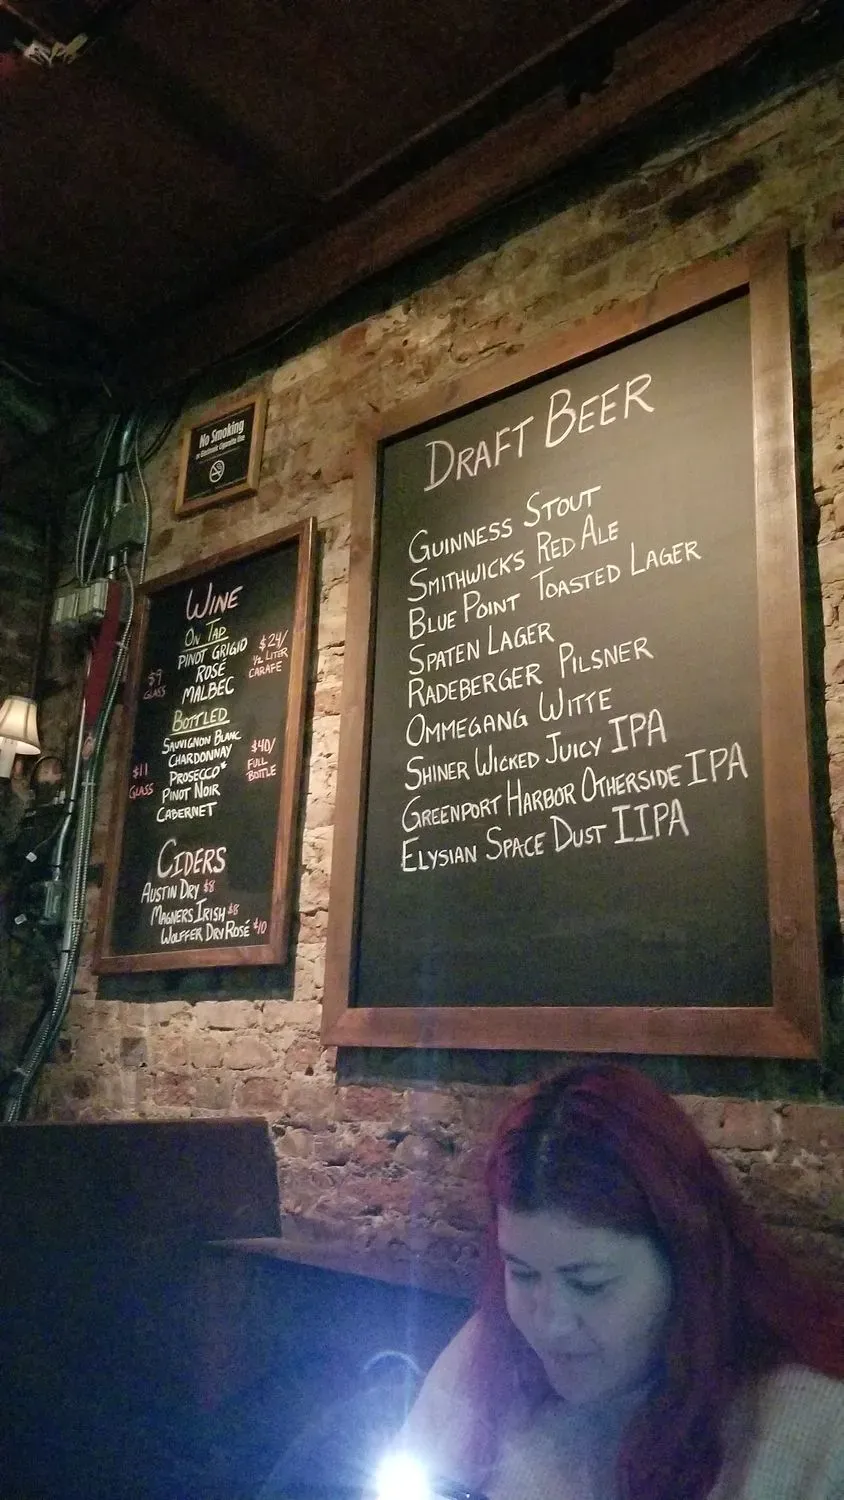 No Smoking
or Electronic Cigarette Use
WINE
ON TAP
PINOT GRIGIO
ROSÉ
MALBEC
$9
GLASS
$24/
½ LITER
CARAFE
BOTTLED
SAUVIGNON BLANC
CHARDONNAY
PROSECCO*
PINOT NOIR
CABERNET
$11
GLASS
$40/
FULL
BOTTLE
CIDERS
AUSTIN DRY $8
MAGNERS IRISH $8
WOLFFER DRY ROSÉ $10
DRAFT BEER
GUINNESS STOUT
SMITHWICKS RED ALE
BLUE POINT TOASTED LAGER
SPATEN LAGER
RADEBERGER PILSNER
OMMEGANG WITTE
SHINER WICKED JUICY IPA
GREENPORT HARBOR OTHERSIDE IPA
ELYSIAN SPACE DUST IIPA